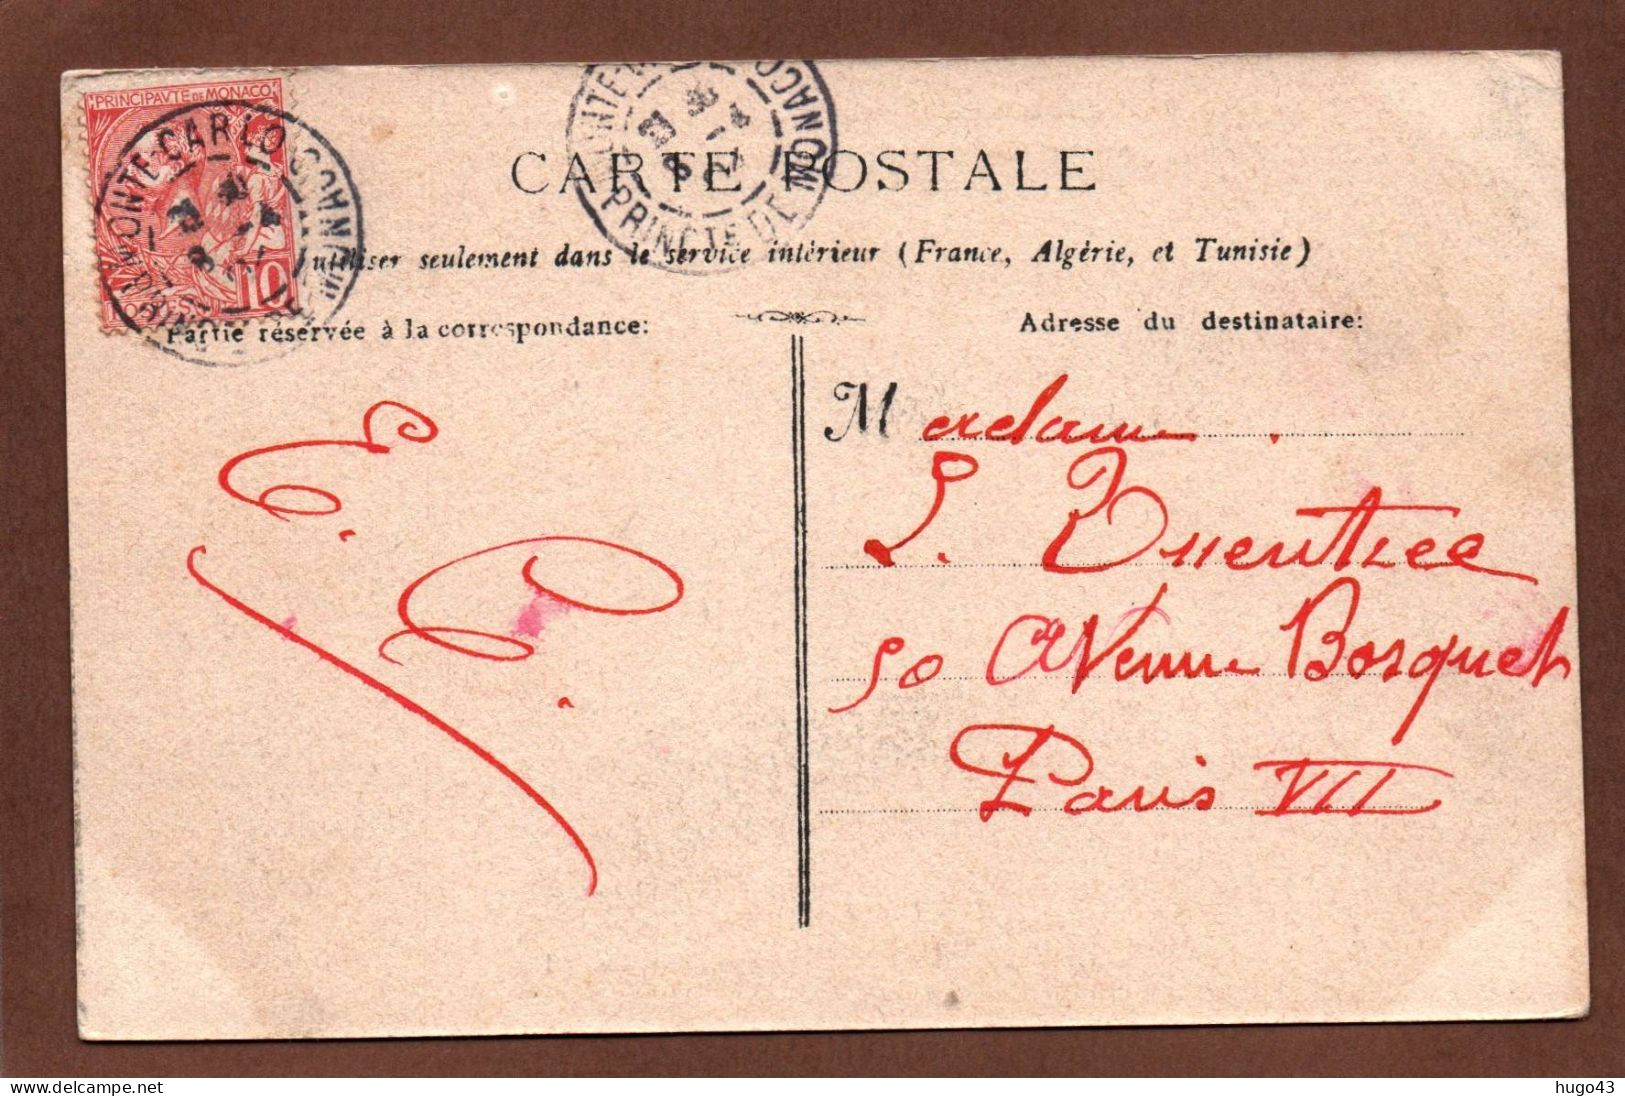 PRINCIPAVTE DE MONACO
10
MONTE-CARLO
PRINCTE DE MONACO
CARTE POSTALE
utiliser seulement dans le service intérieur (France, Algérie, et Tunisie)
Partie réservée à la correspondance:
Adresse du destinataire:
E. P.
Madame
L.
50 Avenue Bosquet
Paris VII
www.delcampe.net
hugo43